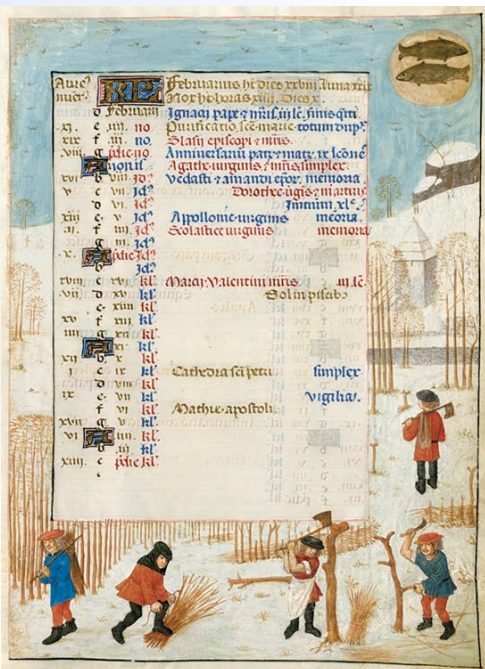 Aure9 KL Februarius ht dies xxviii luna xxix
nuer9 Nox ht horas xiiii. Dies x.
d Februarii Ignacii pape & mris. iii lc.
xi. e iiii. no. Purificatio sce marie. totum dup.
xix f iii. no. Blasii episcopi & mris.
viii. g pdie no. Anniversariu patz & matz. ix leone
A nonis. Agathe virginis & mris simplex.
xvi b viii Id9 Vedasti & amandi epor. memoria
v c vii Id9 Dorothee vgis & martiris
d vi Id9
xiii e v Id9 Appollonie virginis meoria.
ii. f iiii Id9 Scolastice virginis memoria
g iii Id9
x. A pdie Id9
b Id9
xviii c xvi kl9 Marcii. Valentini mris. iii lc.
vii. d xv kl9 Sol in piscib9
e xiiii kl9
xv f xiii kl9
iiii g xii kl9
A xi kl9
xii b x kl9
i c ix kl9 Cathedra sci petri simplex
d viii kl9
ix e vii kl9 vigilia.
f vi kl9 Mathie apostoli.
xvii g v kl9
vi A iiii kl9
b iii kl9
xiiii. c pdie kl9